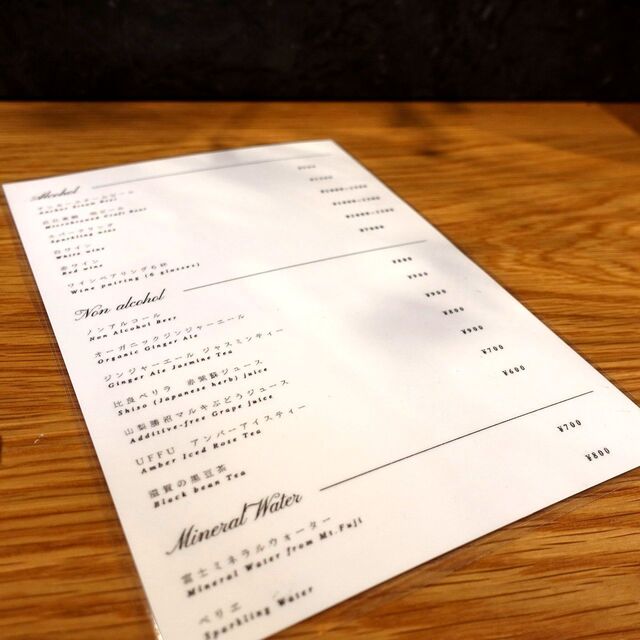 Alcohol
Wine pairing (6 glasses)
ワインペアリング6杯
White wine
赤ワイン
Red wine
Non alcohol
ノンアルコール
Non Alcohol Beer
オーガニックジンジャーエール
Organic Ginger Ale
ジンジャーエール ジャスミンティー
Ginger Ale Jasmine Tea
比良ペリラ 赤紫蘇ジュース
Shiso (Japanese herb) juice
山梨勝沼マルキぶどうジュース ¥900
Additive-free Grape juice
UFFU アンバーアイスティー ¥700
Amber Iced Rose Tea
滋賀の黒豆茶 ¥600
Black bean Tea
Mineral Water
富士ミネラルウォーター ¥700
Mineral Water from Mt.Fuji
ペリエ ¥800
Sparkling Water